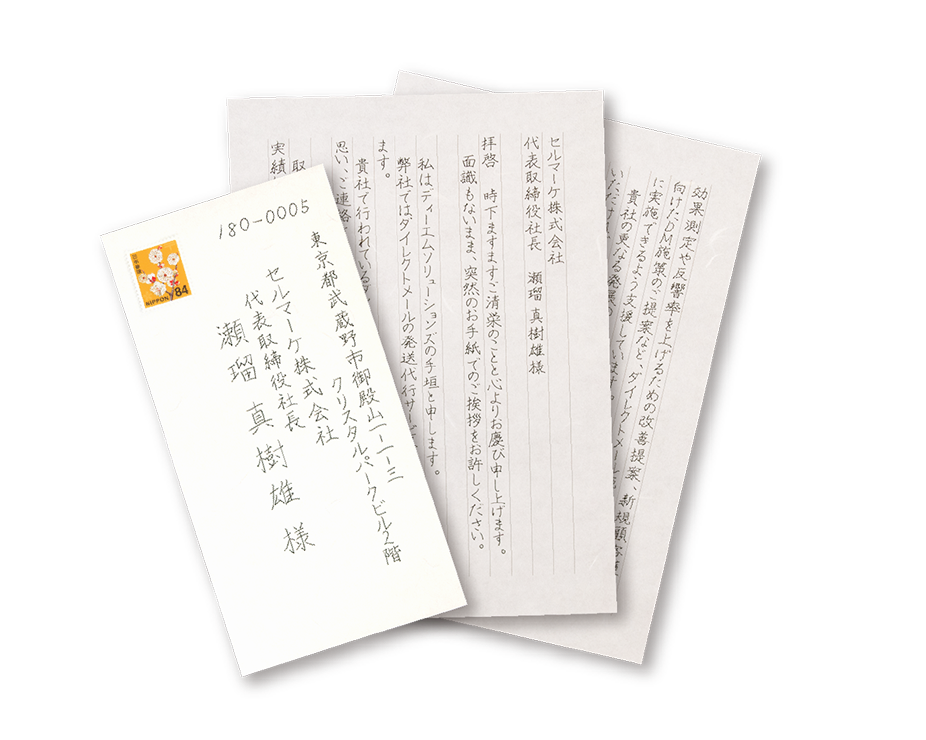 180-0005
東京都武蔵野市御殿山一-一-三
クリスタルパークビル2階
セルマーケ株式会社
代表取締役社長
瀬瑠 真樹雄 様
NIPPON 84
セルマーケ株式会社
代表取締役社長 瀬瑠 真樹雄様
拝啓 時下ますますご清栄のことと心よりお慶び申し上げます。
面識もないまま、突然のお手紙でのご挨拶をお許しください。
私はディーエムソリューションズの手垣と申します。
弊社ではダイレクトメールの発送代行サービス
ます。
貴社で行われている
思い、ご連絡
取
実績
効果測定や反響率を上げるための改善提案、新規顧客
向けたDM施策のご提案など、ダイレクトメール
に実施できるよう支援しています。
貴社の更なる発展の
いただけ